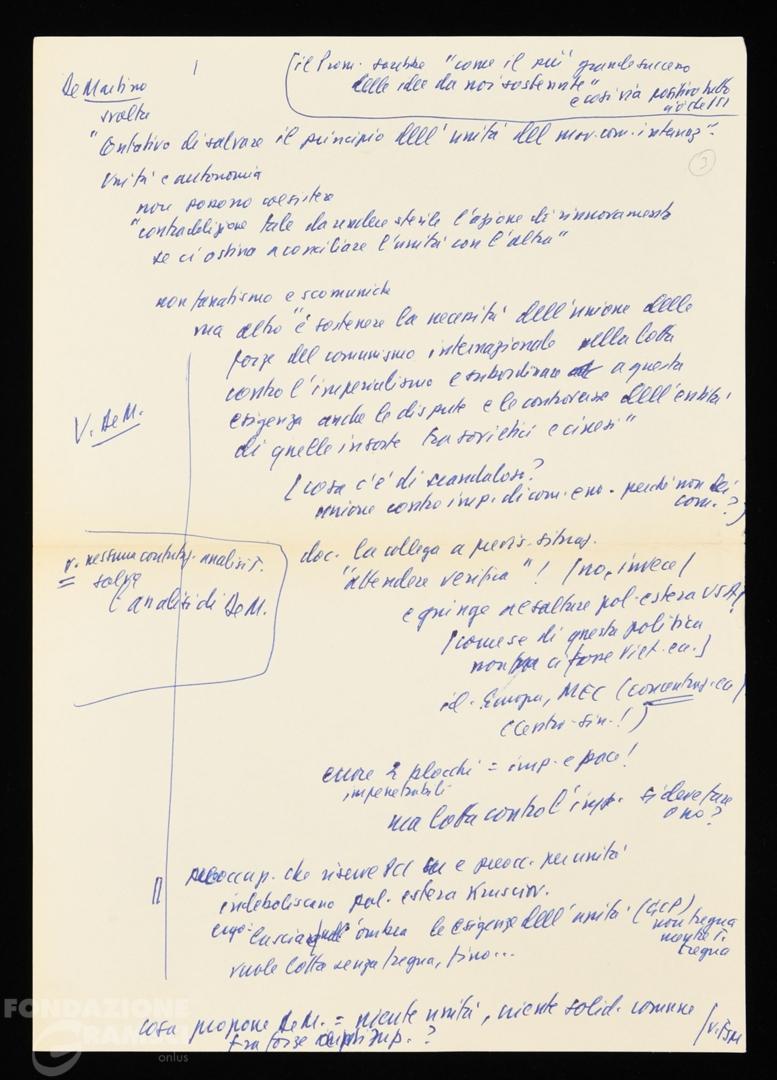 De Martino
1
svolta
(il Prom. sarebbe "come il più grande successo
delle idee da noi sostenute"
e così via positivo tutto
ciò che
"tentativo di salvare il principio dell'unità del mov. com. internaz".
3
Unità e autonomia
non possono coesistere
"contraddizione tale da rendere sterile l'azione di rinnovamento
se ci ostina a conciliare l'unità con l'altra"
non fanatismo e scomuniche
ma altro "è sostenere la necessità dell'unione delle
forze del comunismo internazionale nella lotta
contro l'imperialismo e subordinare a questa
esigenza anche le dispute e le controversie dell'entità
di quelle insorte tra sovietici e cinesi"
V. De M.
(cosa c'è di scandaloso?
unione contro imp. di com. e no - perché non dei
com.?)
v. nessuna analisi T.
salvo
l'analisi di De M.
doc. la collega a previs. situaz.
"attendere verifica"! (no, invece)
e giunge a esaltare pol. estera USA
(come se di questa politica
non ci fosse Viet. ecc.)
id. Europa, MEC (concentraz. ecc)
(centro-sin.!)
2 blocchi = imp. e pace!
impenetrabili
ma lotta contro l'imp. si deve fare
o no?
II
preoccup. che riserve PCI e preocc. per unità
indeboliscano pol. estera Krusciov.
ergo: lasciare nell'ombra le esigenze dell'unità (GCP)
non tregua
tregua
vuole lotta senza tregua, fino...
cosa propone De M. = niente unità, niente solid. comune
fra forze imp.?
FONDAZIONE
GRAMSCI
onlus